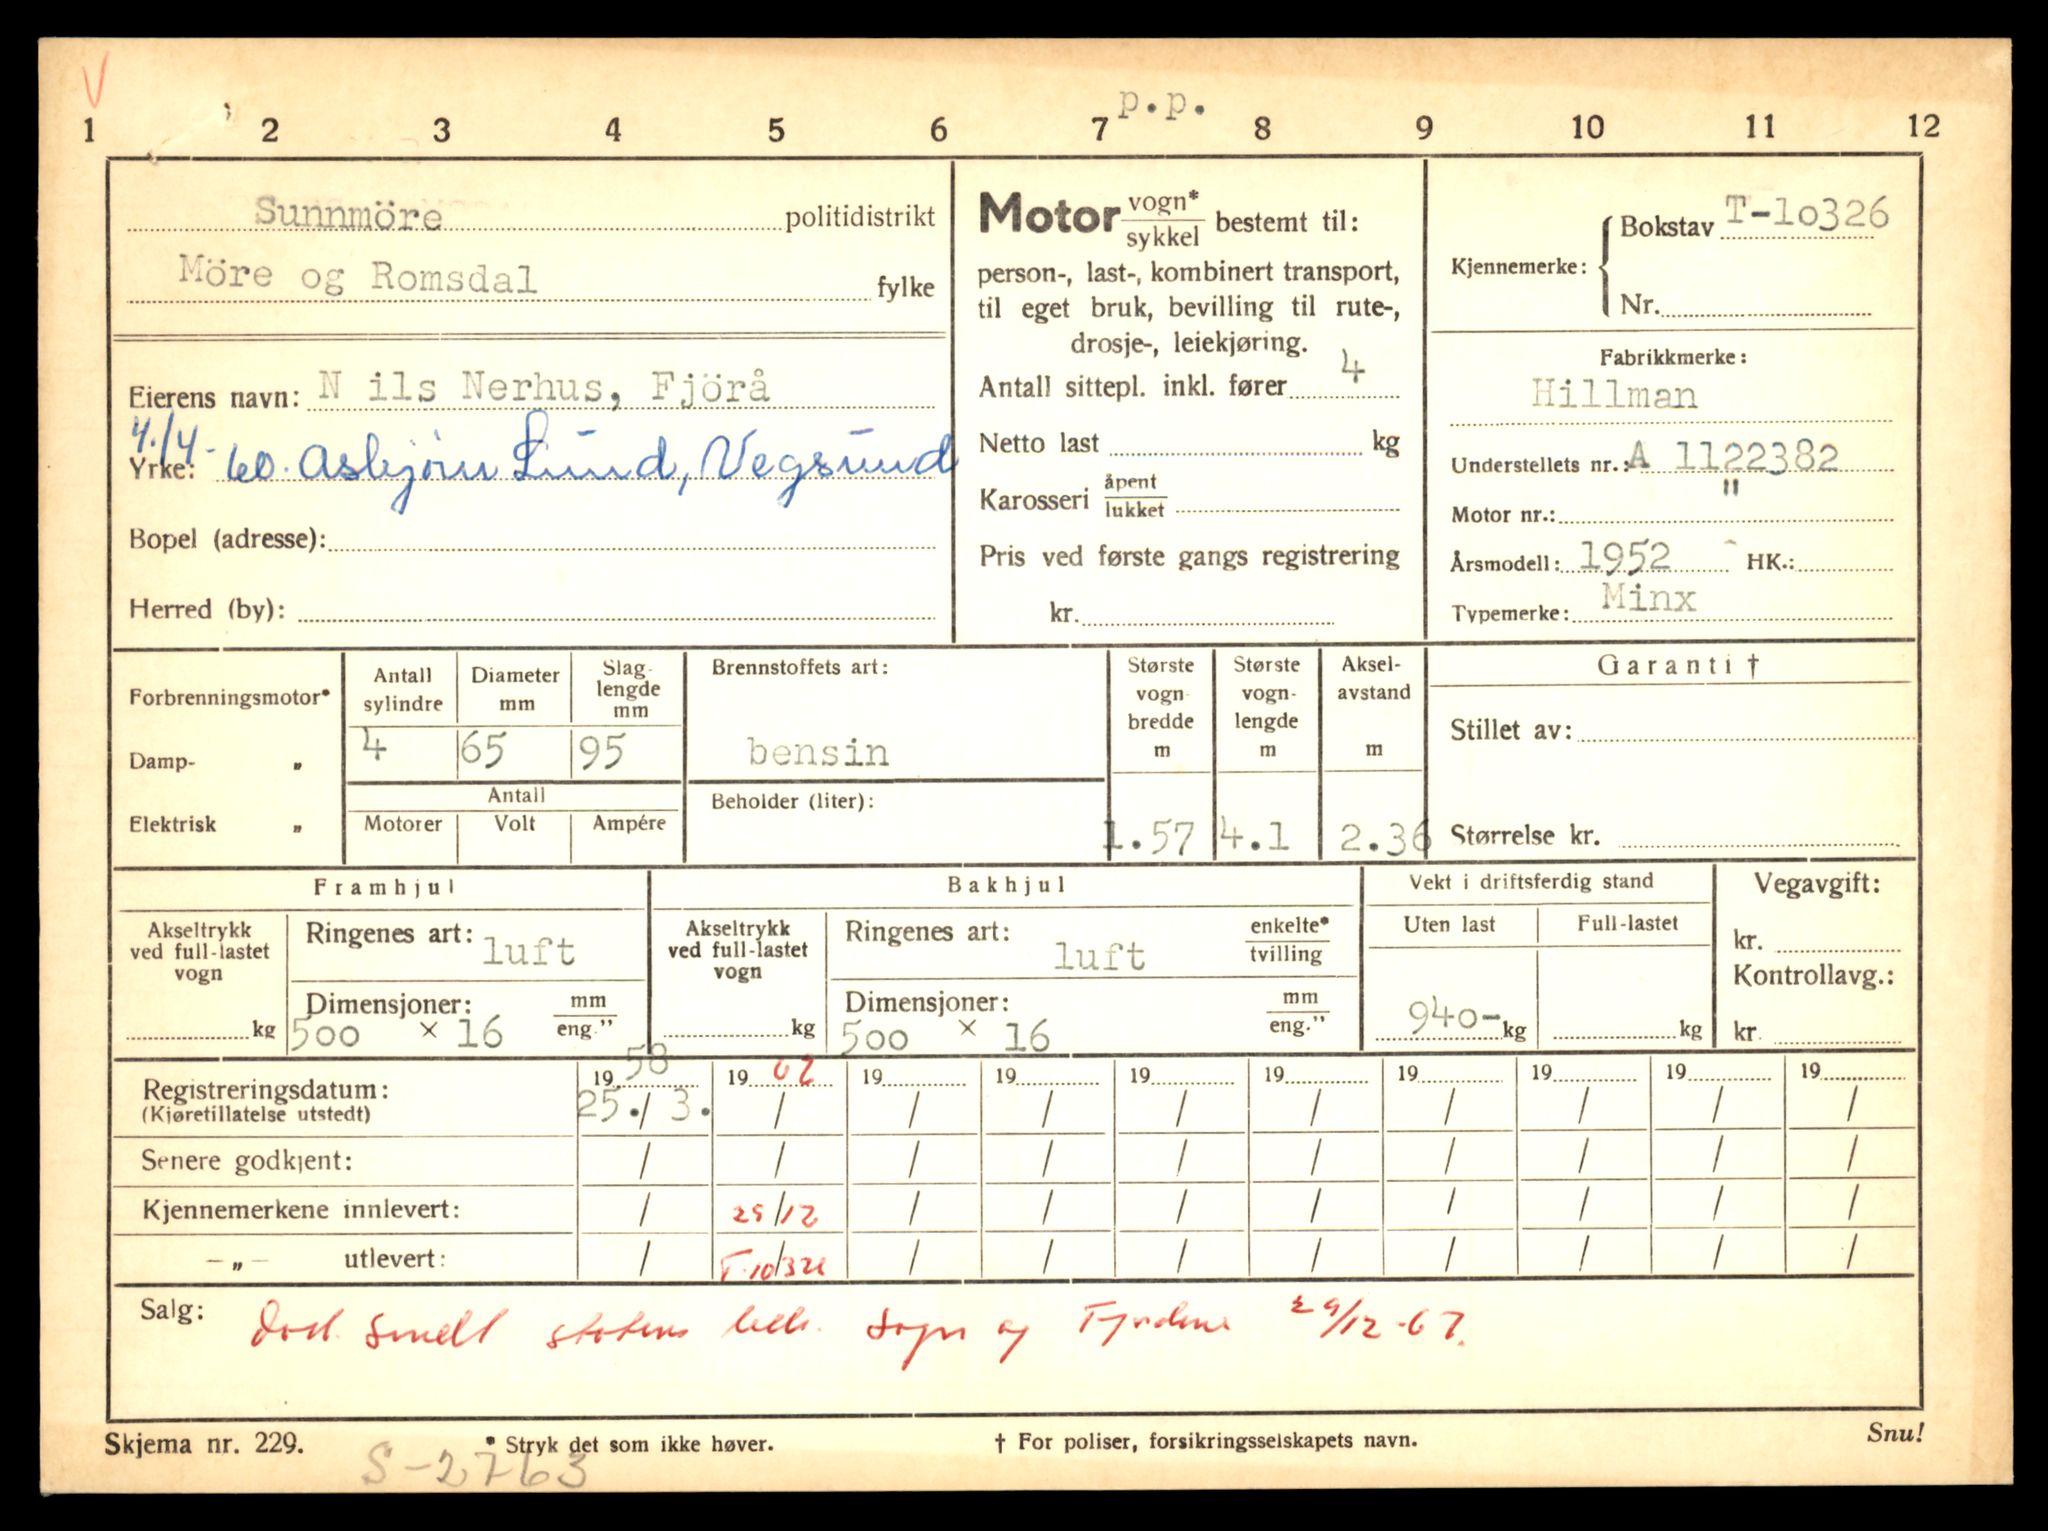 p.p.
1 2 3 4 5 6 7 8 9 10 11 12
Sunnmöre politidistrikt
Möre og Romsdal fylke
Eierens navn: N ils Nerhus, Fjörå
4./4-
Yrke: 60. Asbjørn Lund, Vegsund
Bopel (adresse):
Herred (by):
Motor vogn* sykkel bestemt til:
person-, last-, kombinert transport,
til eget bruk, bevilling til rute-,
drosje-, leiekjøring.
Antall sittepl. inkl. fører 4
Netto last kg
Karosseri åpent lukket
Pris ved første gangs registrering
kr.
Kjennemerke: Bokstav T-10326
Nr.
Fabrikkmerke:
Hillman
Understellets nr.: A 1122382
Motor nr.: "
Årsmodell: 1952 HK.:
Typemerke: Minx
Forbrenningsmotor*
Damp- „
Elektrisk „
Antall sylindre
Diameter mm
Slag-lengde mm
4 65 95
Antall
Motorer Volt Ampére
Brennstoffets art:
bensin
Beholder (liter):
Største vogn bredde m
1.57
Største vogn-lengde m
4.1
Aksel-avstand m
2.36
Garanti †
Stillet av:
Størrelse kr.
Framhjul
Akseltrykk ved full-lastet vogn
kg
Ringenes art: luft
Dimensjoner: mm eng."
500 × 16
Bakhjul
Akseltrykk ved full-lastet vogn
kg
Ringenes art: luft enkelte* tvilling
Dimensjoner: mm eng."
500 × 16
Vekt i driftsferdig stand
Uten last Full-lastet
940- kg kg
Vegavgift:
kr.
Kontrollavg.:
kr.
Registreringsdatum: 19 58 19 62 19 19 19 19 19 19 19 19
(Kjøretillatelse utstedt) 25./3. / / / / / / / / /
Senere godkjent: / / / / / / / / / /
Kjennemerkene innlevert: / 29/12 / / / / / / / /
–„– utlevert: / T-10326 / / / / / / / /
Salg: Smelt statens sogn og Fjordane 29/12-62.
Skjema nr. 229. * Stryk det som ikke høver. † For poliser, forsikringsselskapets navn. Snu!
S-2763